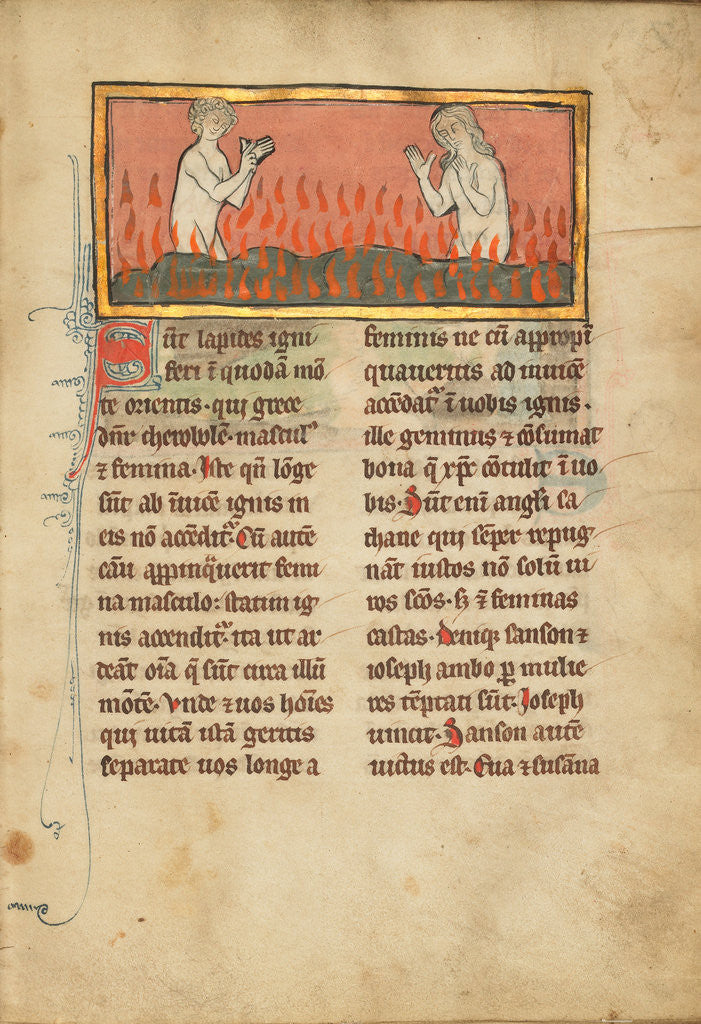 Sūt lapides igni
feri ī quodā mō
te orientis · qui grece
dn̄r cherobolē · mascul⁹
⁊ femina. Iste qn̄ lōge
sūt ab īuicē ignis in
eis nō accēdit᷑. Cū autē
casu appinq̄uerit femi
na masculo : statim ig
nis accendit᷑ · ita ut ar
deāt oīa q̄ sūt circa illū
mōtē. Vnde ⁊ uos hoīes
qui uitā istā geritis
separate uos longe a
feminis ne cū appropī
quaueritis ad inuicē
accēdat᷑ ī uobis ignis ·
ille geminus ⁊ cōsumat
bona q̄ xp̄c cōtulit ī uo
bis. Sūt enī angl̄i sa
thane qui sēper repug
nāt iustos nō solū ui
ros scōs · sꝫ ⁊ feminas
castas. Deniqꝫ sanson ⁊
ioseph ambo ꝑ mulie
res tēptati sūt. Ioseph
uincit. Sanson autē
uictus est. Eua ⁊ susāna